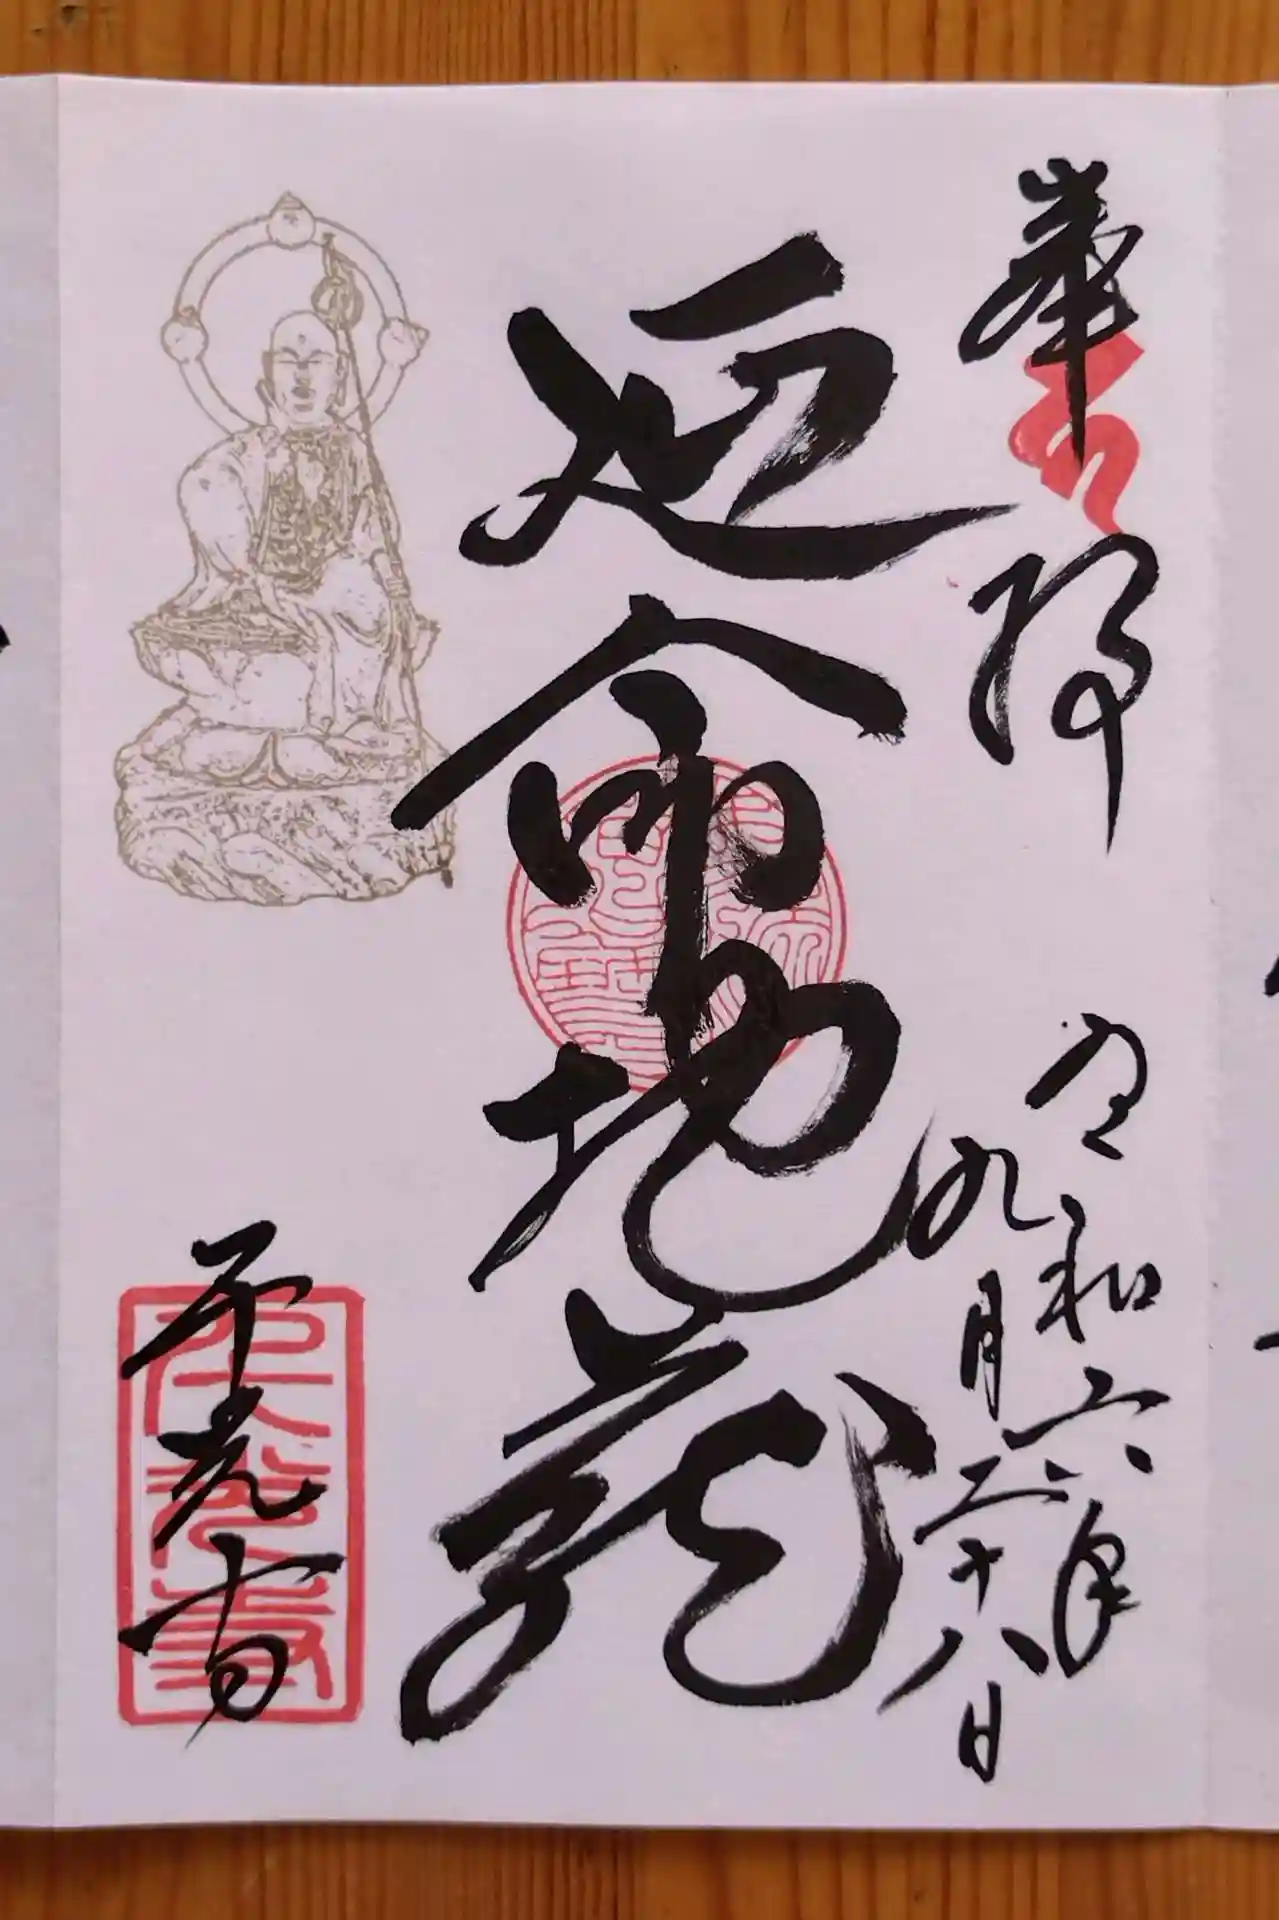 奉拝
令和六年
九月二十八日
延命地蔵
天光寺